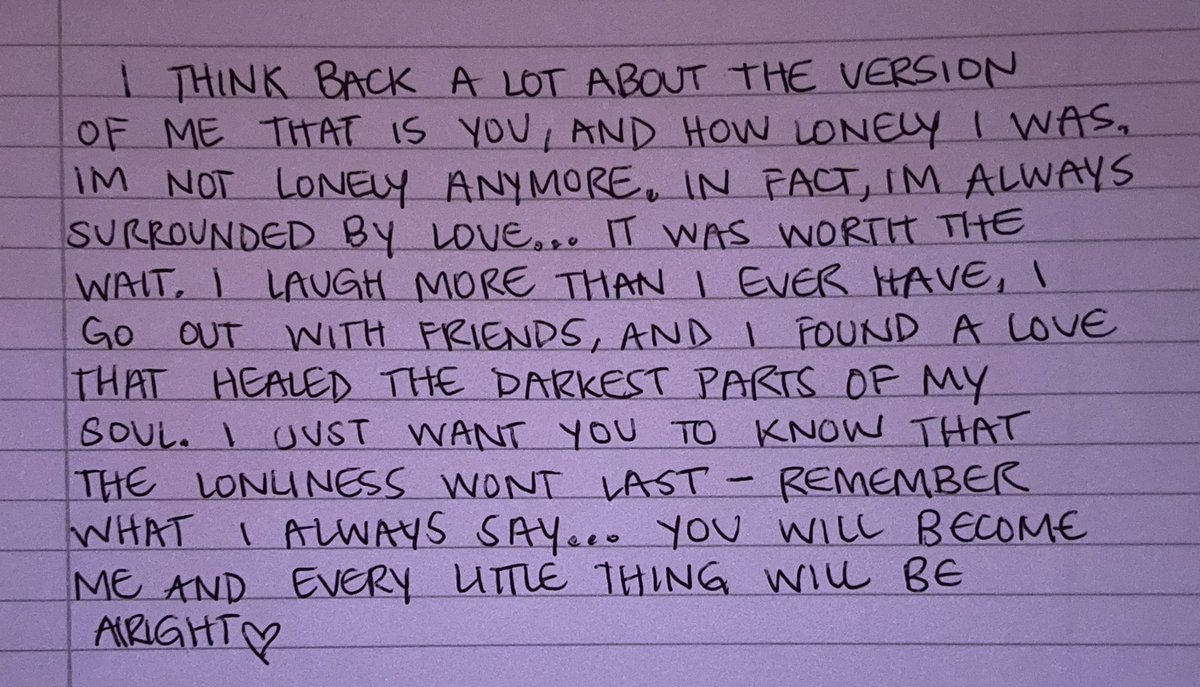 I THINK BACK A LOT ABOUT THE VERSION
OF ME THAT IS YOU, AND HOW LONELY I WAS.
IM NOT LONELY ANYMORE. IN FACT, IM ALWAYS
SURROUNDED BY LOVE... IT WAS WORTH THE
WAIT. I LAUGH MORE THAN I EVER HAVE, I
GO OUT WITH FRIENDS, AND I FOUND A LOVE
THAT HEALED THE DARKEST PARTS OF MY
SOUL. I JUST WANT YOU TO KNOW THAT
THE LONLINESS WONT LAST - REMEMBER
WHAT I ALWAYS SAY... YOU WILL BECOME
ME AND EVERY LITTLE THING WILL BE
ALRIGHT♡